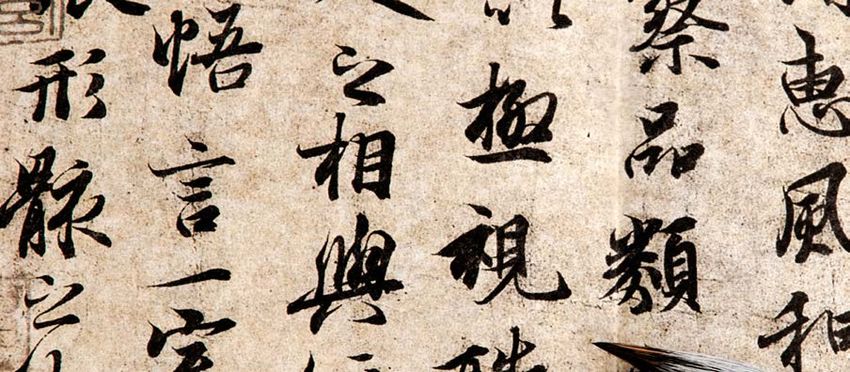 惠風和
察品類
極視
之相與
悟言一室
形骸之